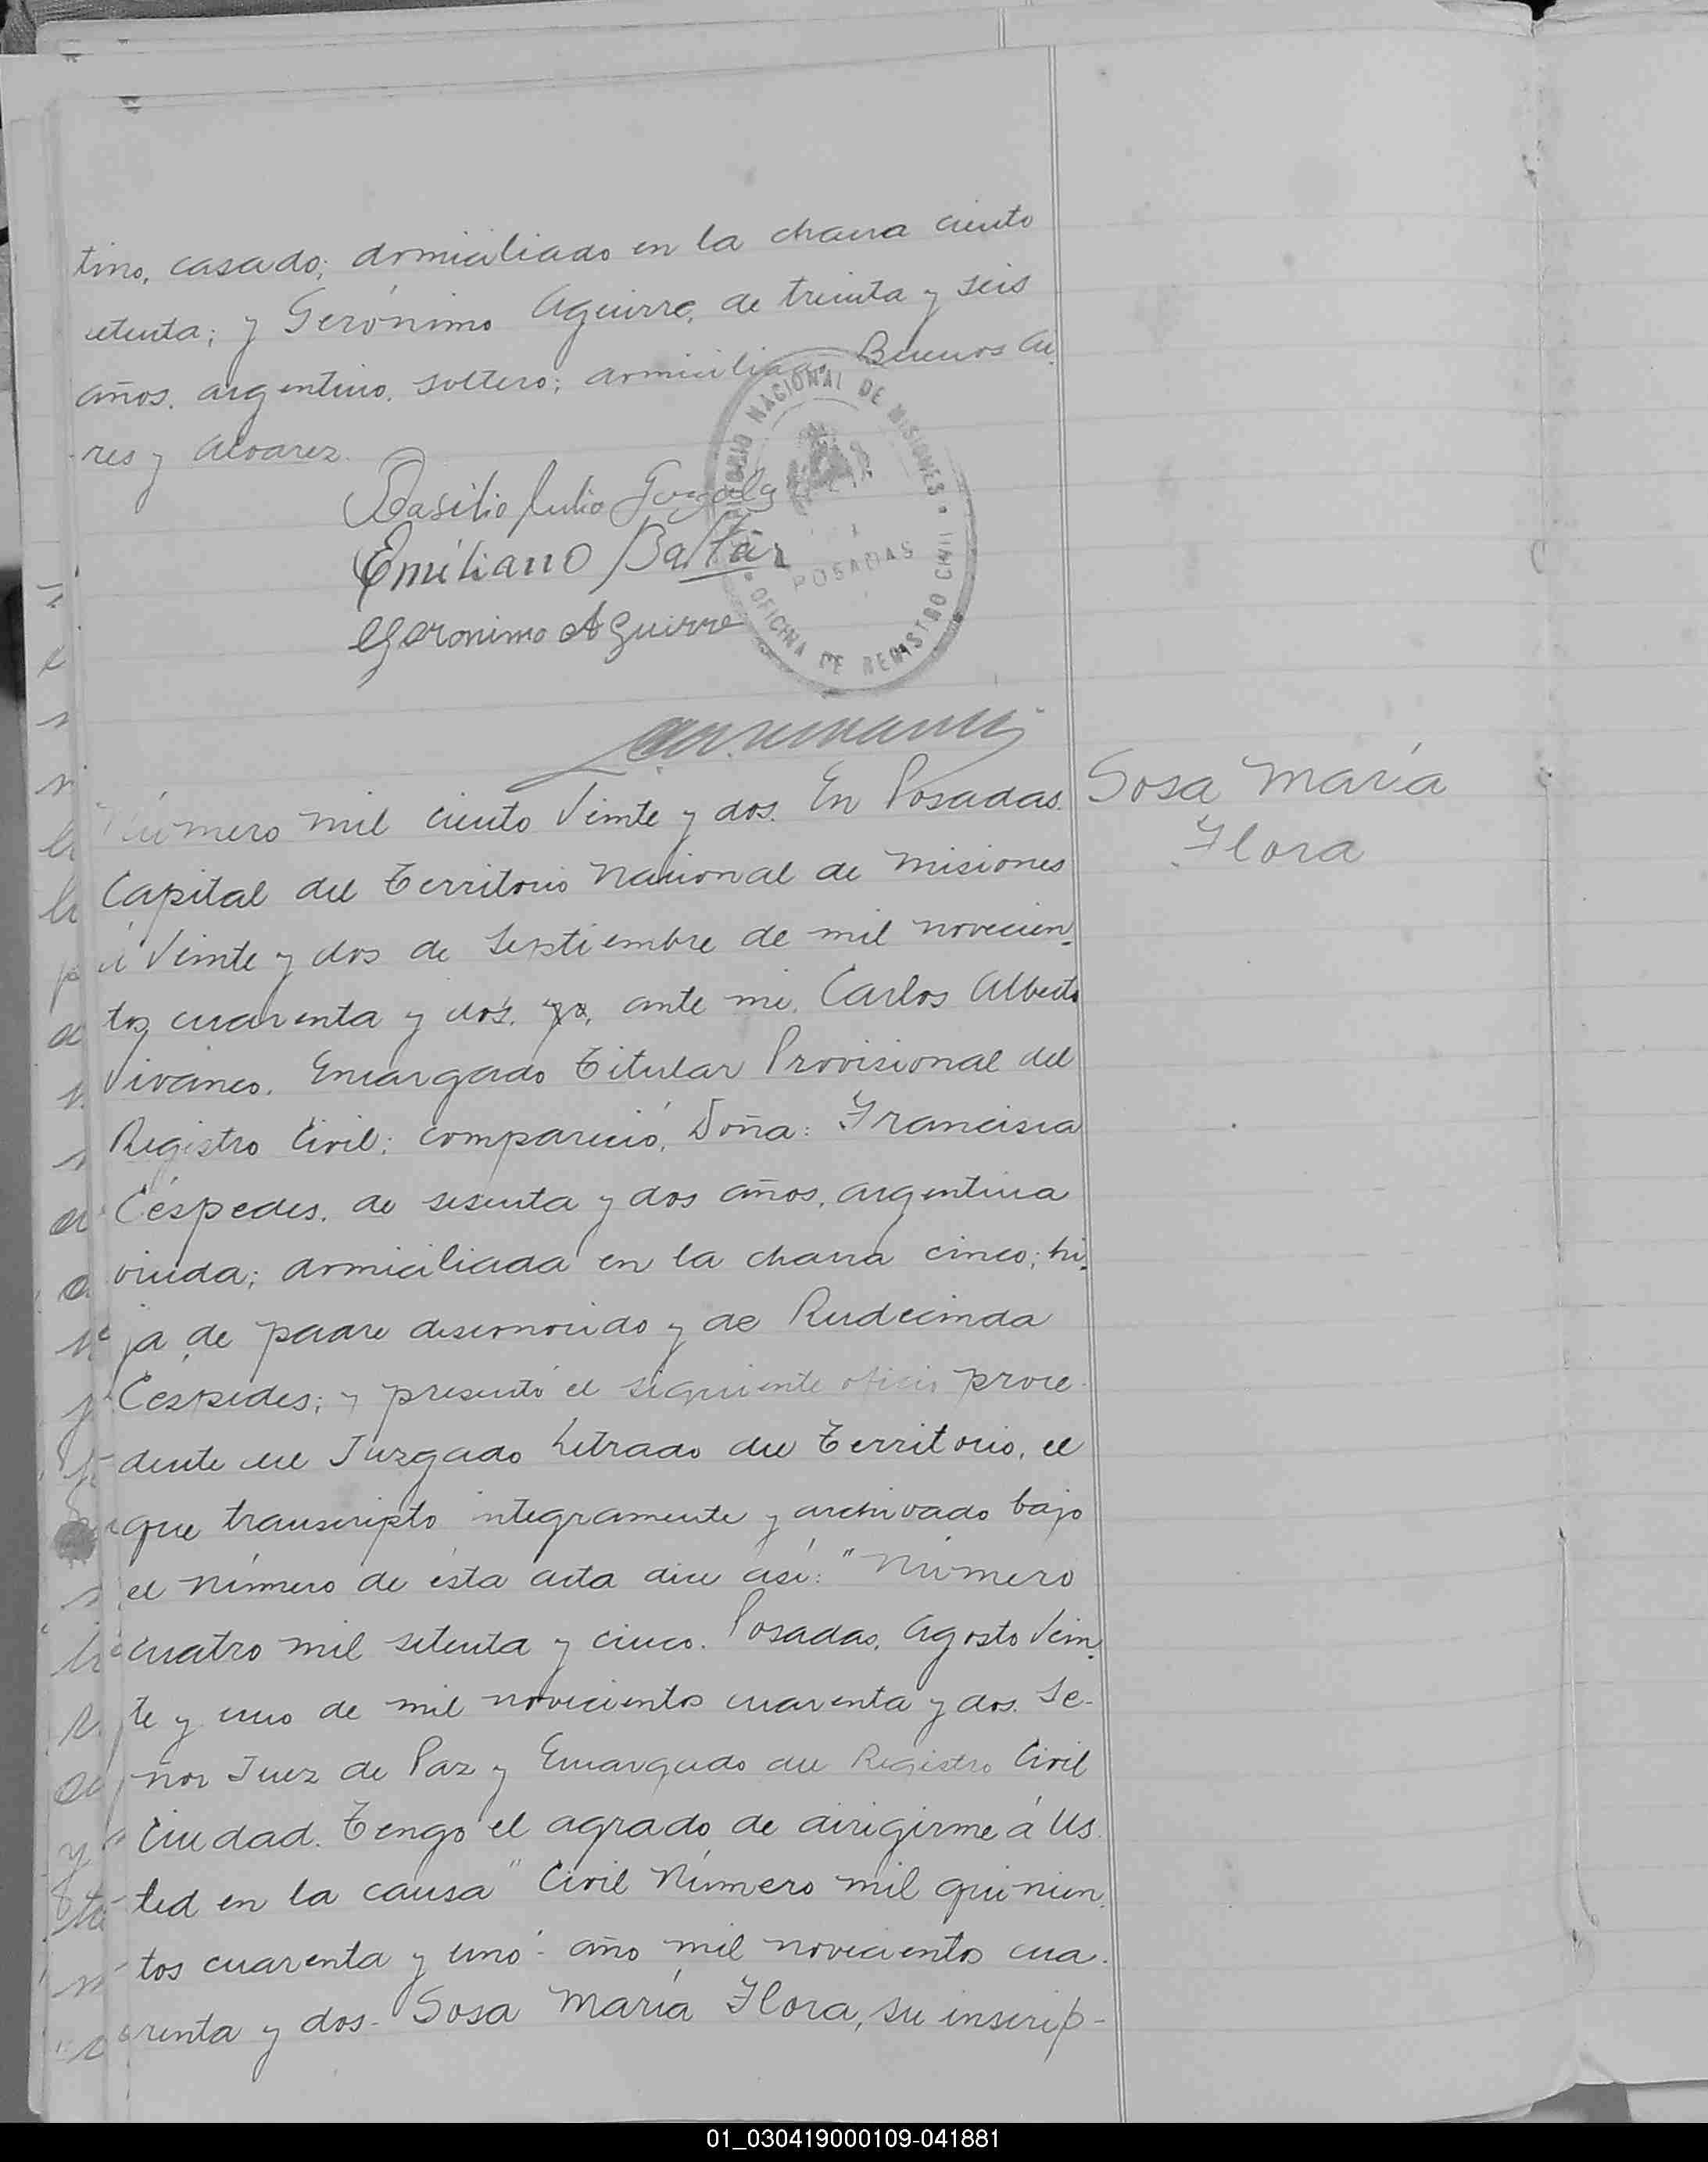 tino, casado; domiciliado en la chacra ciento
etenta; y Gerónimo Aguirre, de treinta y seis
años, argentino, soltero; domiciliado Buenos Ai-
res y Alvarez.
Basilio Julio
Emiliano
Geronimo Aguirre
TERRITORIO NACIONAL DE MISIONES
POSADAS
OFICINA DE REGISTRO CIVIL
Número mil ciento Veinte y dos. En Posadas.
Sosa María
Flora
Capital del Territorio Nacional de Misiones
á Veinte y dos de Septiembre de mil novecien-
tos cuarenta y dos. yo, ante mi, Carlos Alberto
Vivanco. Encargado Titular Provisional del
Registro Civil; compareció, Doña: Francisca
Céspedes, de sesenta y dos años, argentina
viuda; domiciliada en la chacra cinco; hi-
ja de padre desconocido y de Rudecinda
Céspedes; y presentó el siguiente oficio proce-
dente del Juzgado Letrado del Territorio, el
que transcripto integramente y archivado bajo
el número de ésta acta dice así: "Número
cuatro mil setenta y cinco. Posadas, Agosto Vein-
te y uno de mil novecientos cuarenta y dos. Se-
ñor Juez de Paz y Encargado del Registro Civil
Ciudad. Tengo el agrado de dirigirme á Us-
ted en la causa "Civil Número mil quinien-
tos cuarenta y uno - año mil novecientos cua-
renta y dos - Sosa María Flora, su inscrip-
01_030419000109-041881